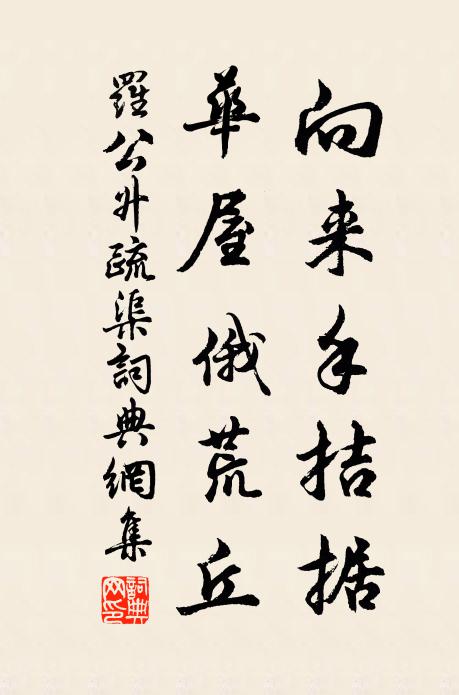 向来手拮据
華屋俄荒丘
羅公升疏渠詞典網集
詞典网印